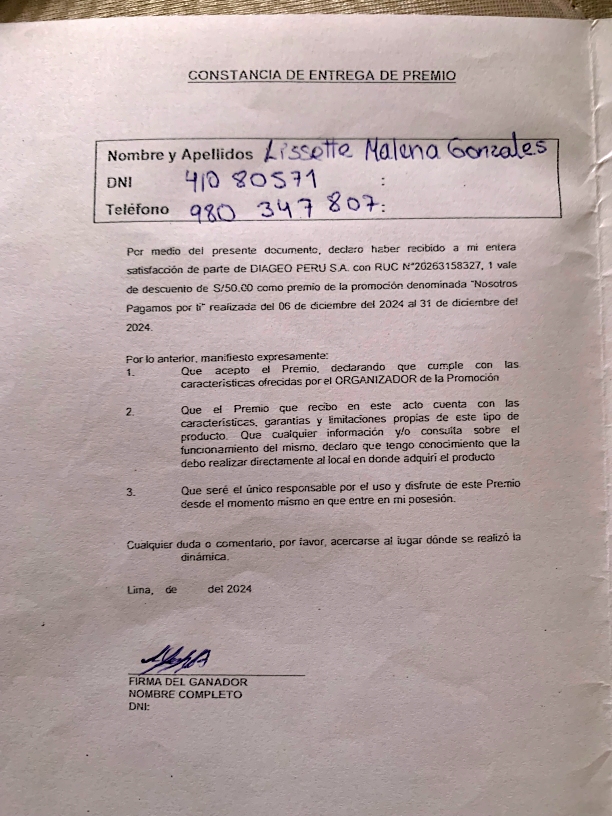 CONSTANCIA DE ENTREGA DE PREMIO
Nombre y Apellidos Lissette Malena Gonzales
DNI 41080571 :
Teléfono 980 347 807:
Por medio del presente documento, declaro haber recibido a mi entera
satisfacción de parte de DIAGEO PERU S.A. con RUC N°20263158327, 1 vale
de descuento de S/50.00 como premio de la promoción denominada "Nosotros
Pagamos por ti" realizada del 06 de diciembre del 2024 al 31 de diciembre del
2024.
Por lo anterior, manifiesto expresamente:
1. Que acepto el Premio, declarando que cumple con las
características ofrecidas por el ORGANIZADOR de la Promoción
2. Que el Premio que recibo en este acto cuenta con las
características, garantías y limitaciones propias de este tipo de
producto. Que cualquier información y/o consulta sobre el
funcionamiento del mismo, declaro que tengo conocimiento que la
debo realizar directamente al local en donde adquirí el producto
3. Que seré el único responsable por el uso y disfrute de este Premio
desde el momento mismo en que entre en mi posesión.
Cualquier duda o comentario, por favor, acercarse al lugar dónde se realizó la
dinámica.
Lima, de del 2024
FIRMA DEL GANADOR
NOMBRE COMPLETO
DNI: